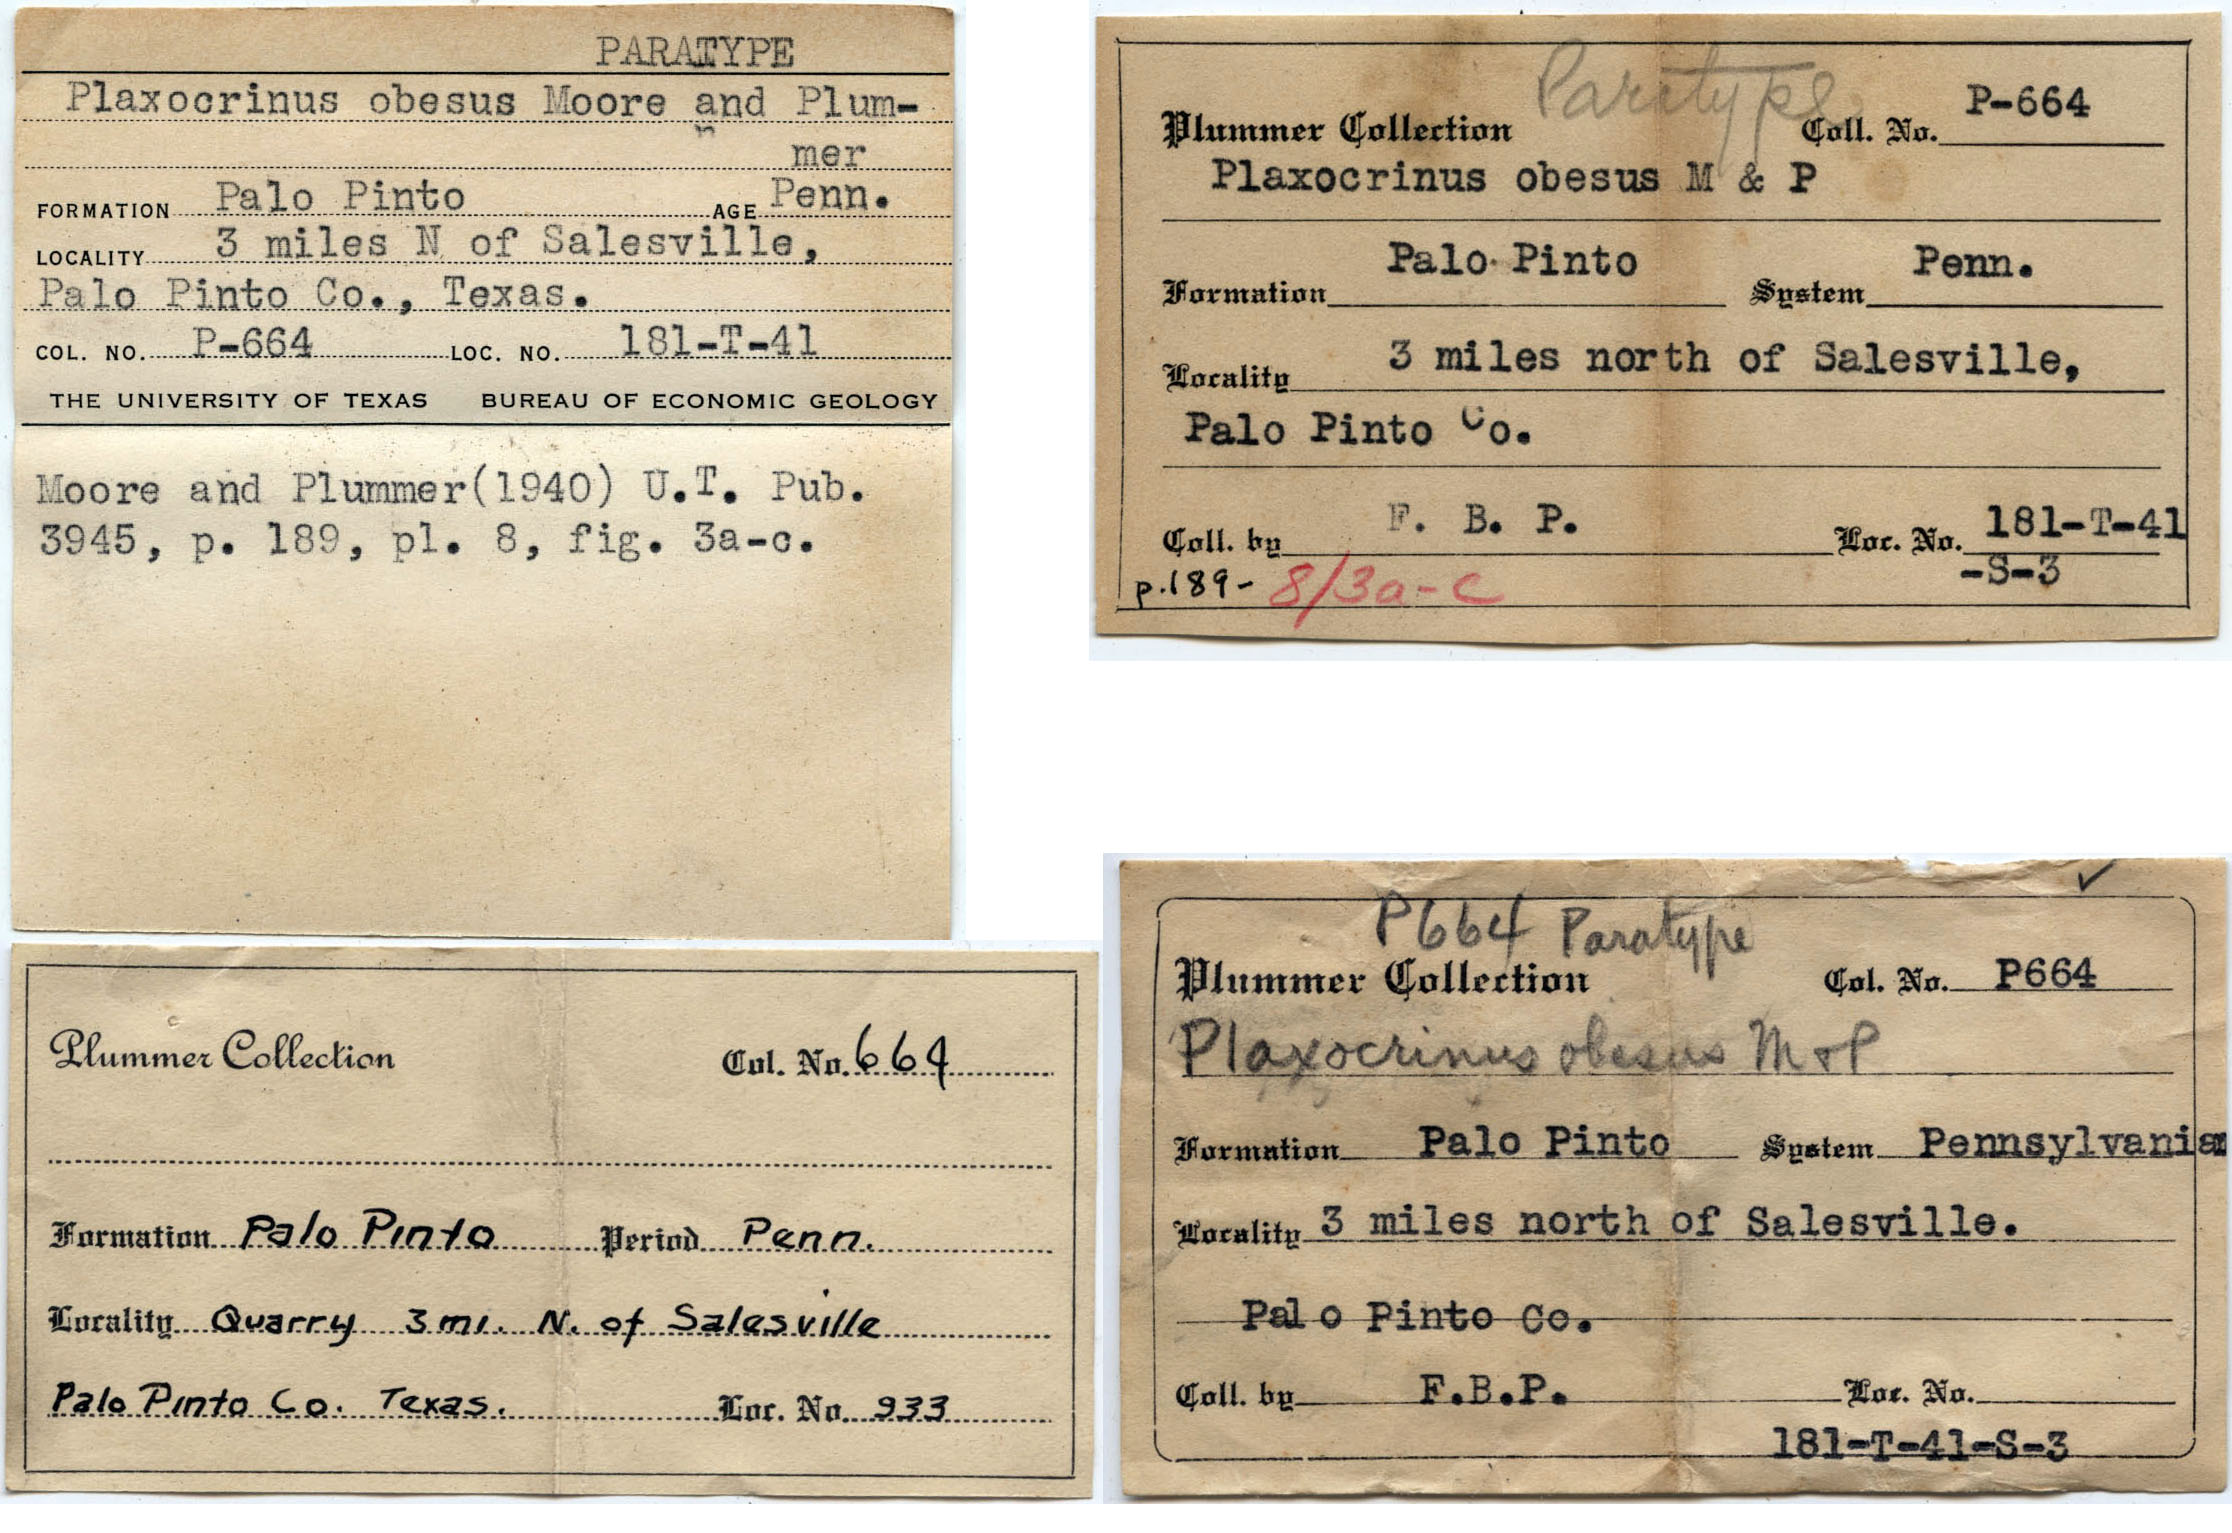 PARATYPE
Plaxocrinus obesus Moore and Plum-
mer
FORMATION Palo Pinto AGE Penn.
LOCALITY 3 miles N of Salesville,
Palo Pinto Co., Texas.
COL. NO. P-664 LOC. NO. 181-T-41
THE UNIVERSITY OF TEXAS BUREAU OF ECONOMIC GEOLOGY
Moore and Plummer(1940) U.T. Pub.
3945, p. 189, pl. 8, fig. 3a-c.
Paratype
Plummer Collection Coll. No. P-664
Plaxocrinus obesus M & P
Formation Palo Pinto System Penn.
Locality 3 miles north of Salesville,
Palo Pinto Co.
Coll. by F. B. P. Loc. No. 181-T-41
-S-3
p.189- 8/3a-c
Plummer Collection Col. No. 664
Formation Palo Pinto Period Penn.
Locality Quarry 3 mi. N. of Salesville
Palo Pinto Co. Texas. Loc. No. 933
P664 Paratype
Plummer Collection Col. No. P664
Plaxocrinus obesus M & P
Formation Palo Pinto System Pennsylvanian
Locality 3 miles north of Salesville.
Palo Pinto Co.
Coll. by F.B.P. Loc. No.
181-T-41-S-3